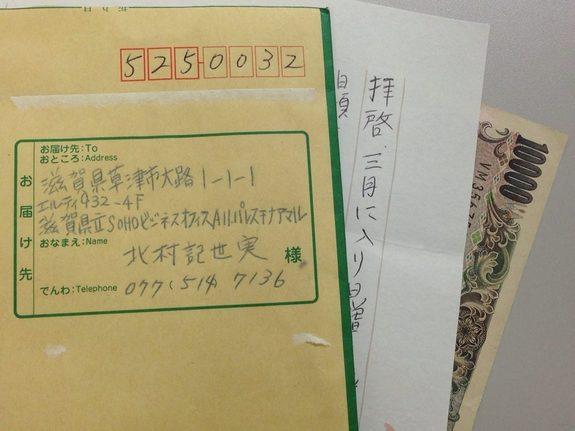 5250032
お届け先:To
おところ:Address
滋賀県草津市大路1-1-1
エルティ932-4F
滋賀県立SOHOビジネスオフィスAll.パレスチナアマル
おなまえ:Name
北村記世実 様
でんわ:Telephone 077(514)7136
お届け先
拝啓、三月に入り日増
10000